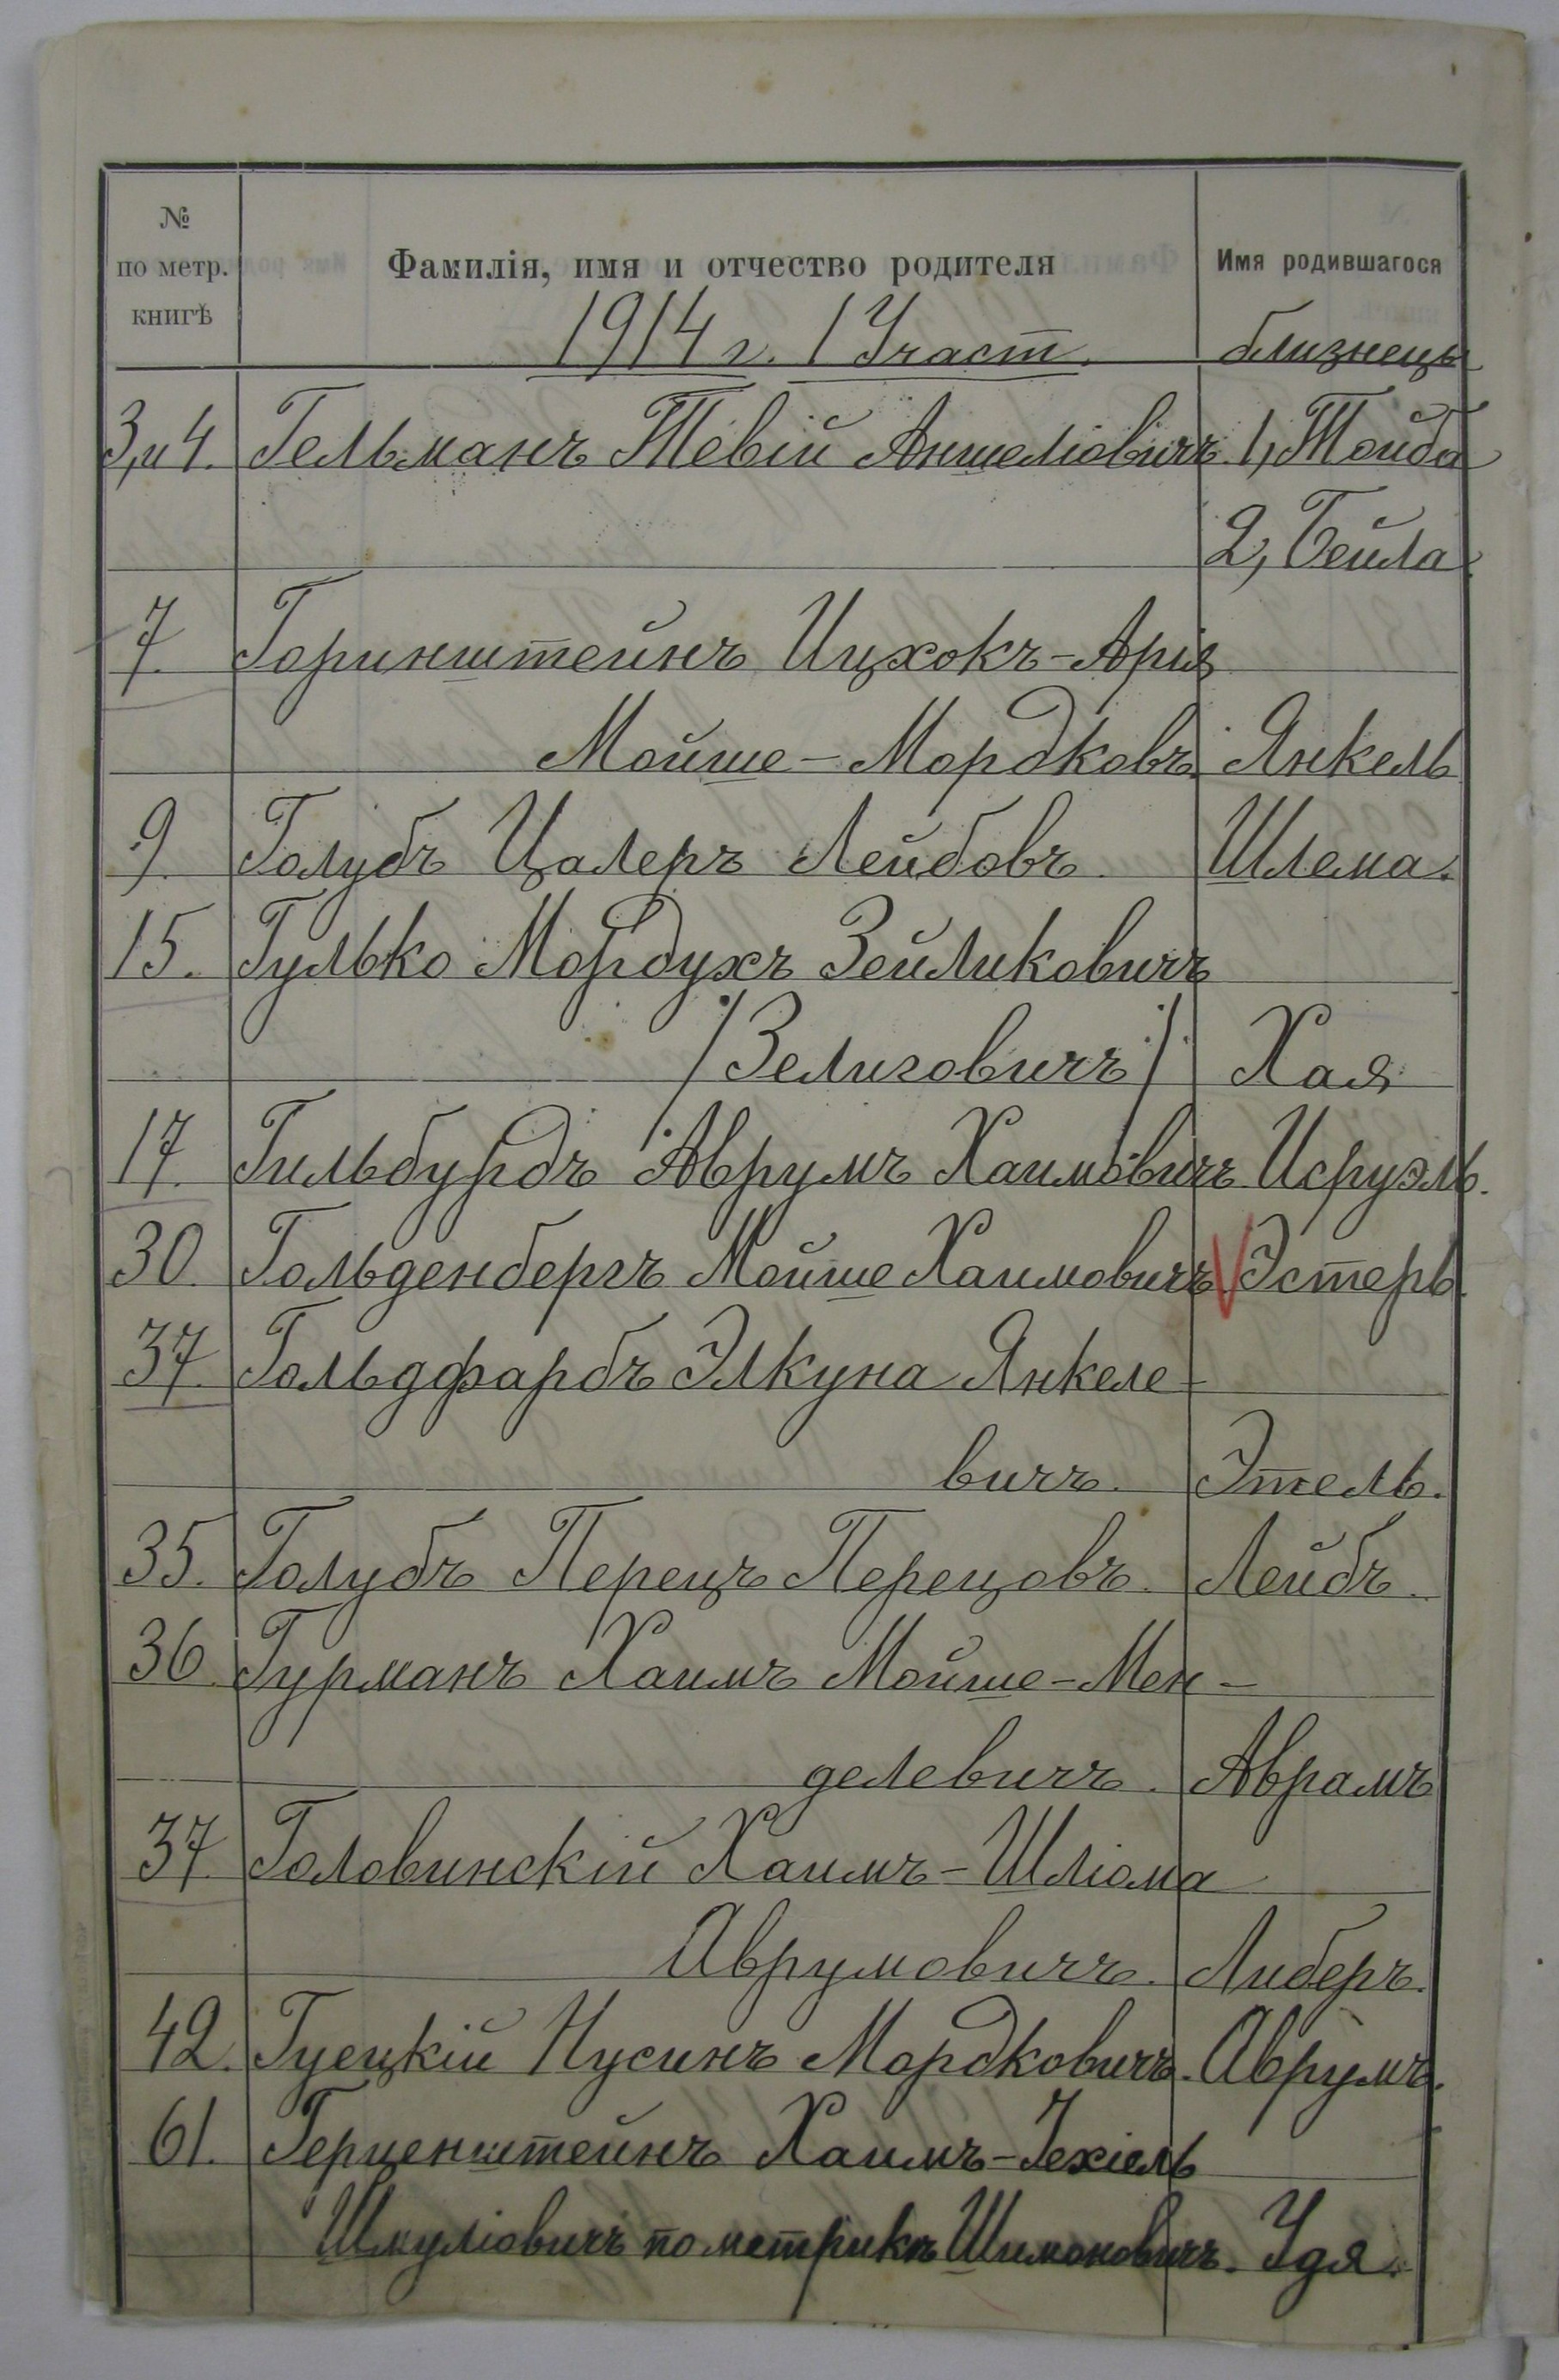 № по метр. книгѣ Фамилія, имя и отчество родителя Имя родившагося
1914 г. 1 Участ. близнецы
3, и 4. Гельманъ Тевій Аншеліовичъ 1, Тойба
2, Бейла
7. Горинштейнъ Ицхокъ-Арія
Мойше-Мордковъ. Янкель
9. Голубъ Цалеръ Лейбовъ. Шлема.
15. Гулько Мордухъ Зейликовичъ
/Зелиговичъ/ Хая
17. Гильбурдъ Аврумъ Хаимовичъ Исруэль.
30. Гольденбергъ Мойше Хаимовичъ Эстеръ.
37. Гольдфарбъ Элкуна Янкеле-
вичъ. Этель.
35. Голубъ Перецъ Перецовъ. Лейбъ.
36 Гурманъ Хаимъ Мойше-Мен-
делевичъ. Аврамъ
37. Головинскій Хаимъ-Шліома
Аврумовичъ. Либеръ.
42. Гуецкій Нусинъ Мордковичъ. Аврумъ.
61. Герценштейнъ Хаимъ-Іехіель
Шмуліовичъ по метрикѣ Шимоновичъ. Удя.